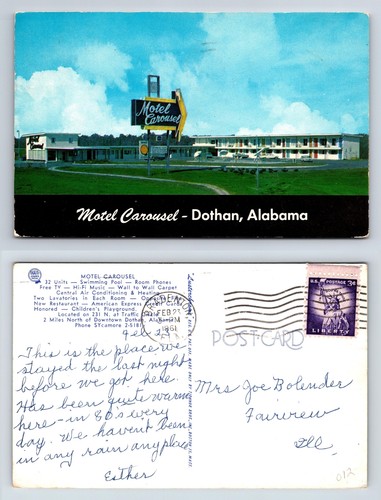 Motel
Carousel
Motel Carousel - Dothan, Alabama
MOTEL CAROUSEL
32 Units — Swimming Pool — Room Phones
Free TV — Hi-Fi Music — Wall to Wall Carpet
Central Air Conditioning & Heating
Two Lavatories in Each Room
New Restaurant — American Express Credit Cards
Honored — Children's Playground.
Located on 231 N. at Traffic
2 Miles North of Downtown Dothan, Alabama
Phone SYcamore 2-5181
FEB 23
PM
1961
U.S. POSTAGE 3¢
LIBERTY
POST CARD
This is the place we
stayed the last night
before we got here.
Has been quite warm
here - in 80's every
day. We havent been
in any rain anyplace
Esther
Mrs Joe Bolender
Fairview
Ill
012